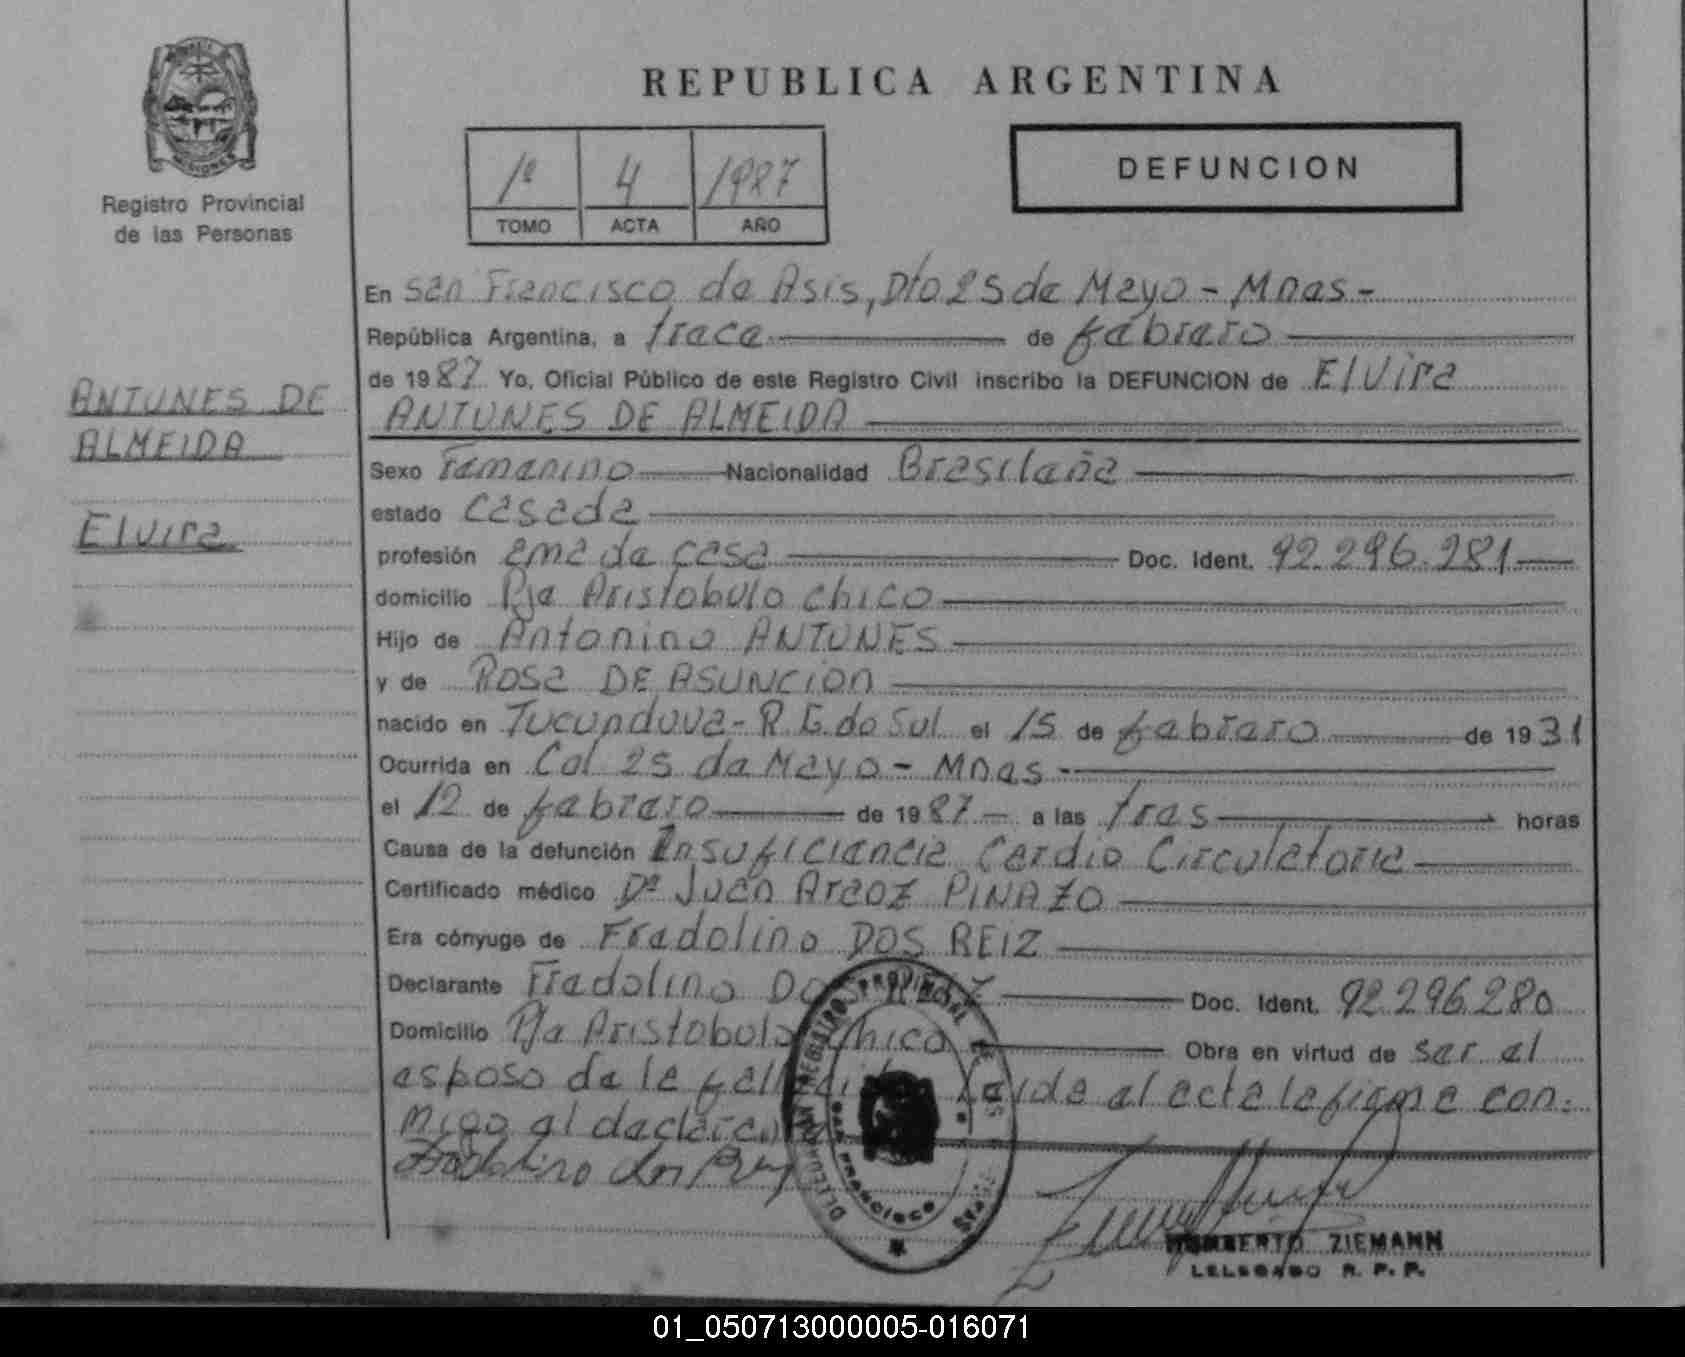 REPUBLICA ARGENTINA
MISIONES
Registro Provincial
de las Personas
1º 4 1987
TOMO ACTA AÑO
DEFUNCION
En San Francisco de Asis, Dto 25 de Mayo - Mnes -
República Argentina, a trece de febrero
de 1987 Yo, Oficial Público de este Registro Civil inscribo la DEFUNCION de Elvira
ANTUNES DE ALMEIDA
ANTUNES DE
ALMEIDA
Elvira
Sexo Femenino Nacionalidad Brasileña
estado casada
profesión ama de casa Doc. Ident. 92.296.281
domicilio Pje Aristobulo chico
Hijo de Antonino ANTUNES
y de Rosa DE ASUNCION
nacido en Tucunduva - R.G. do Sul el 15 de febrero de 1931
Ocurrida en Col 25 de Mayo - Mnes -
el 12 de febrero de 1987 a las tres horas
Causa de la defunción Insuficiencia Cardio Circulatoria
Certificado médico Dº Juan Araoz PINAZO
Era cónyuge de Fredolino DOS REIZ
Declarante Fredolino DOS Doc. Ident. 92.296.280
Domicilio Pje Aristobulo chico Obra en virtud de ser el
esposo de la Leida el acta la firma con-
migo el
Fredolino dos
PROVINCIAL DE
SAN FRANCISCO
ZIEMANN
R. P. P.
01_050713000005-016071